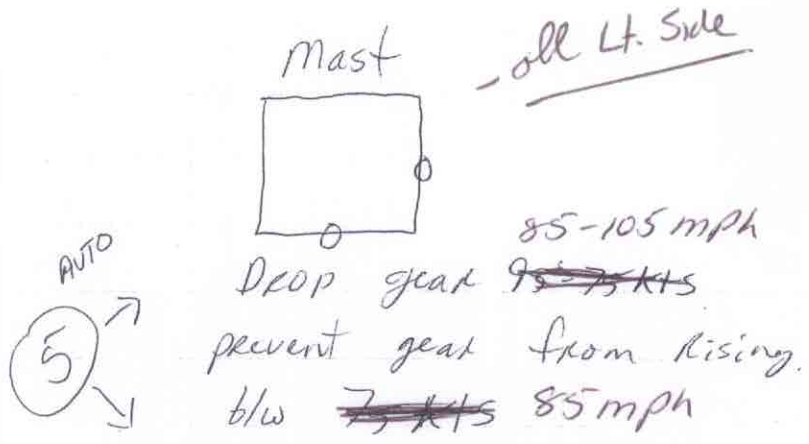 Mast
- all Lt. Side
85-105 mph
AUTO
Drop gear 95-75 kts
5
prevent gear from Rising.
b/w 75 kts 85 mph